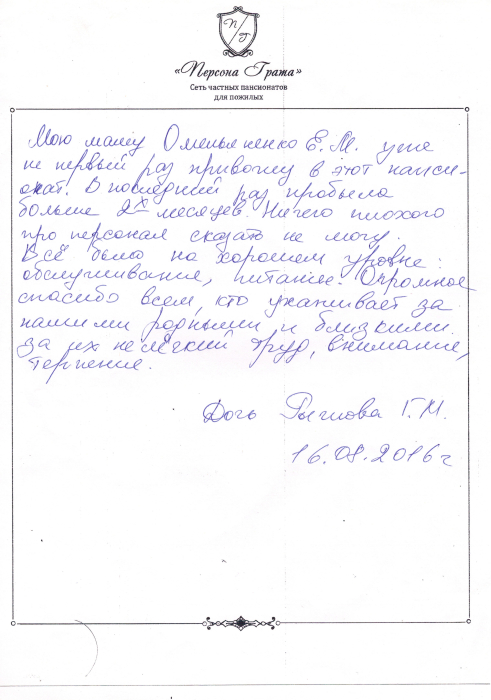 П Г
«Персона Грата»
Сеть частных пансионатов
для пожилых
Мою маму Омельяненко Е.М. уже
не первый раз привожу в этот панси-
онат. В последний раз пробыла
больше 2х месяцев. Ничего плохого
про персонал сказать не могу.
Всё было на хорошем уровне:
обслуживание, питание. Огромное
спасибо всем, кто ухаживает за
нашими родными и близкими.
за их нелёгкий труд, внимание,
терпение.
Дочь Г.М.
16.08.2016г